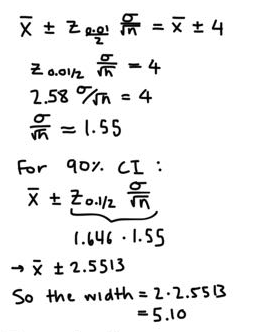 x̄ ± z 0.01/2 σ/√n = x̄ ± 4
z 0.01/2 σ/√n = 4
2.58 σ/√n = 4
σ/√n ≈ 1.55
For 90% CI :
x̄ ± z 0.1/2 σ/√n
1.646 · 1.55
→ x̄ ± 2.5513
So the width = 2 · 2.5513
= 5.10